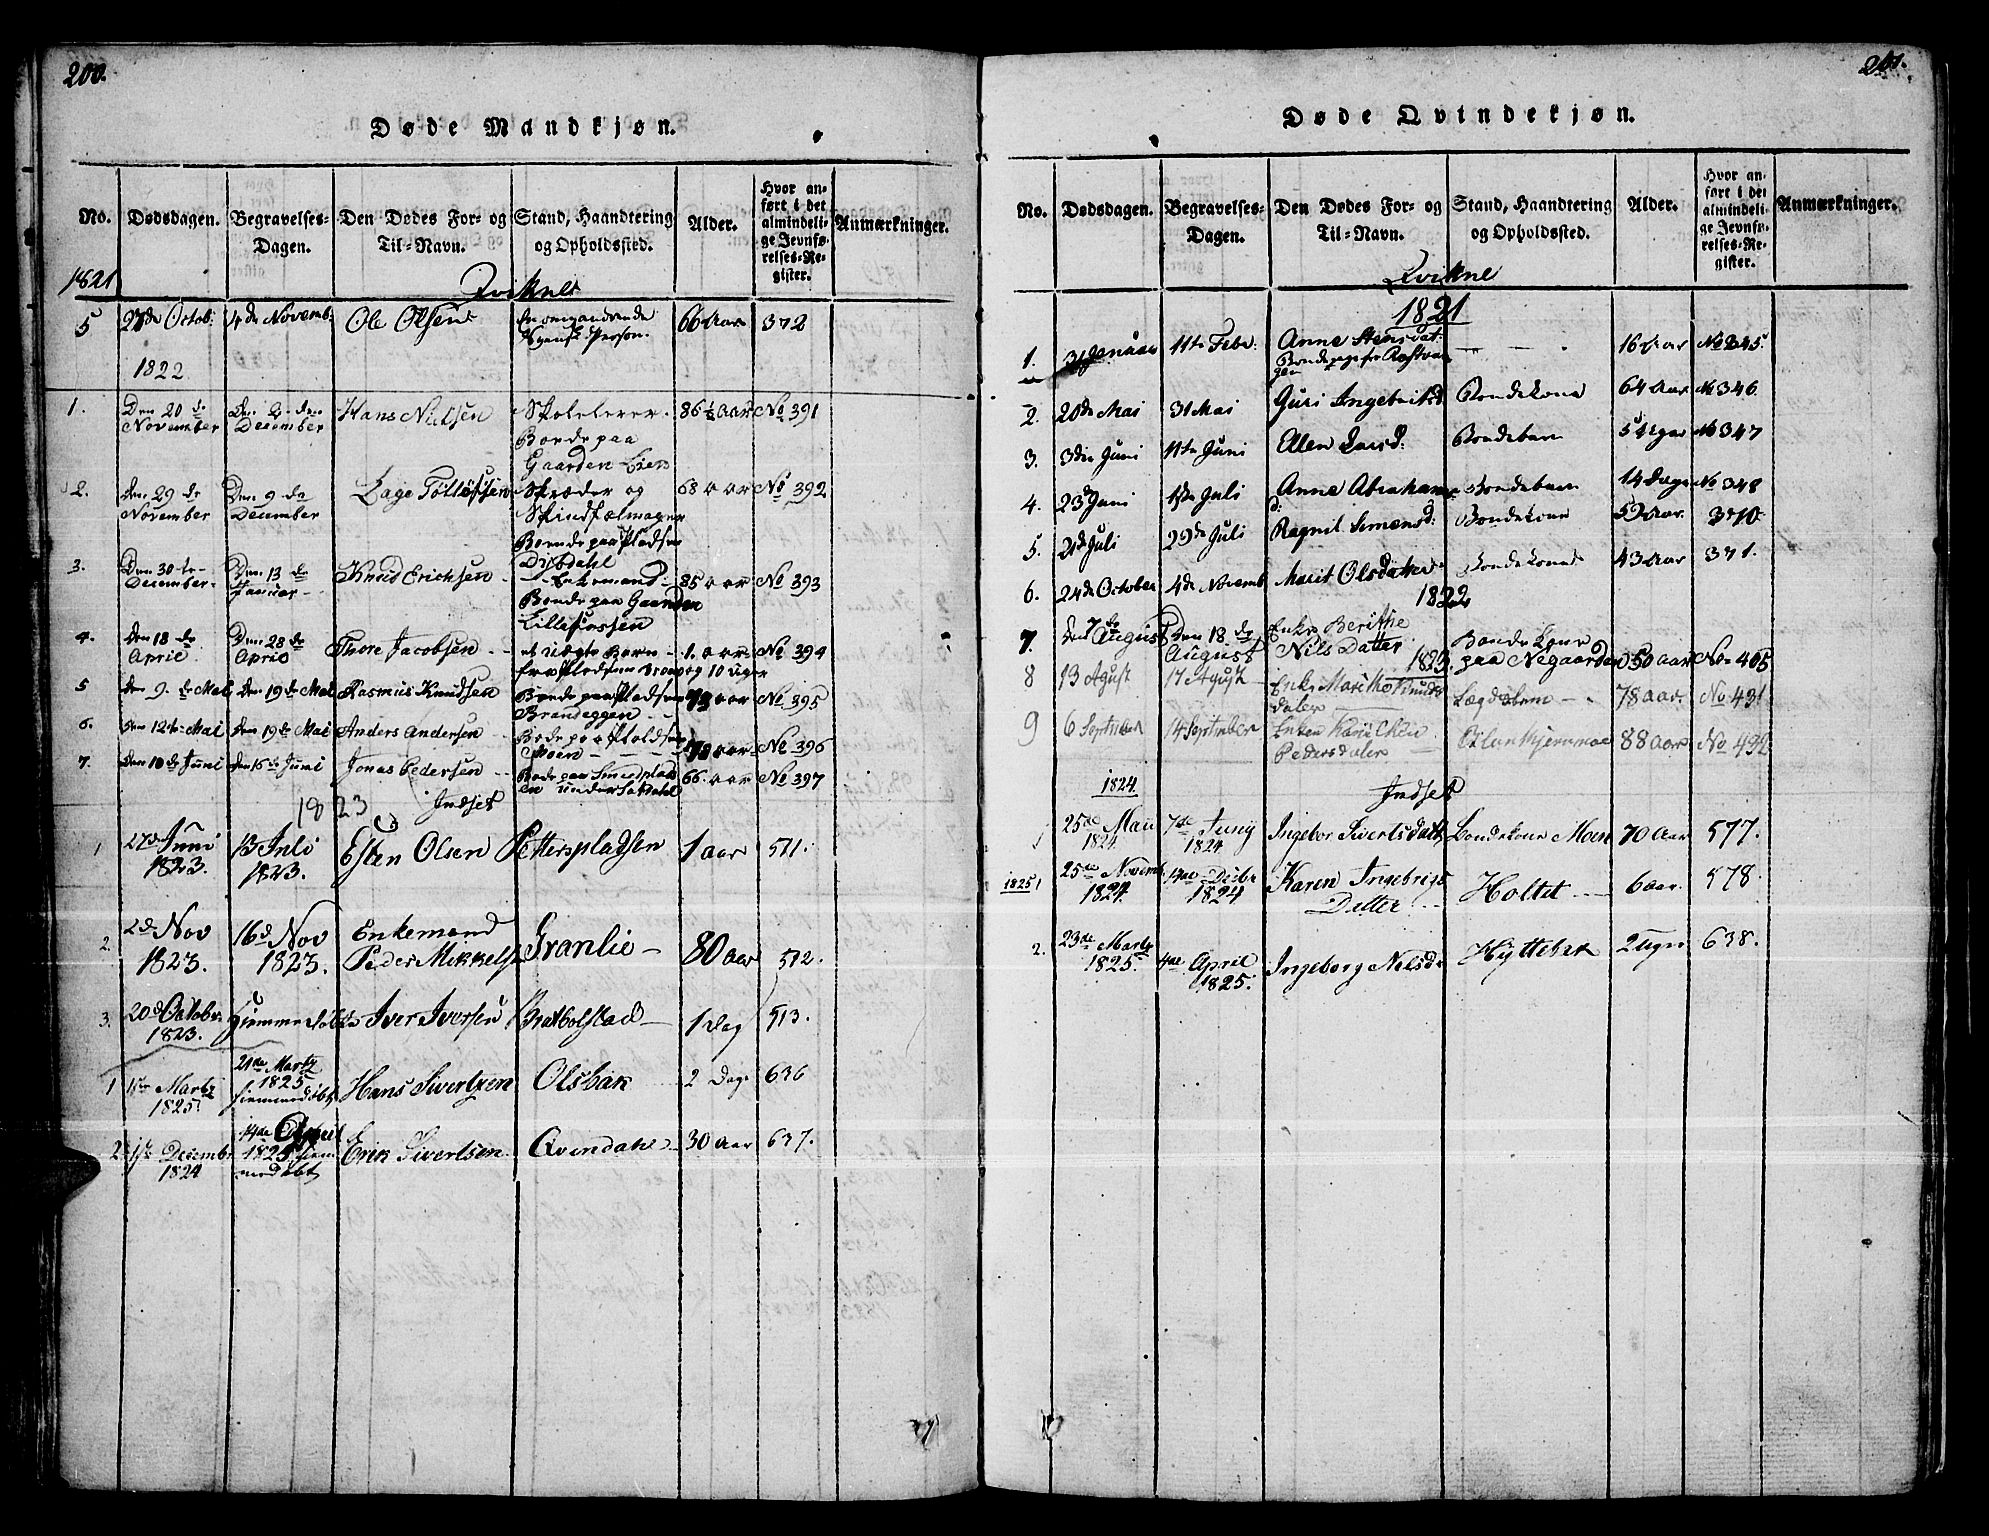 200.
Døde Mandkjøn.
No.
Dødsdagen.
Begravelses-
Dagen.
Den Dødes For- og
Til-Navn.
Stand, Haandtering
og Opholdssted.
Alder.
Hvor an-
ført i det
almindeli-
ge Jevnfø-
relses-Re-
gister.
Anmærkninger.
1821
Qvikne
5 27de Octob: 4de Novemb: Ole Olsen 66 Aar 372
1822
1. Den 20de November Den 2den December Hans Nielsen Skolelerer 86½ Aar No 391
Boende paa
Gaarden Lien
2. Den 29de November Den 9de December Lage Skræder og 68 aar No 392
Boende paa Pladsen
Dybdahl
3. Den 30te December Den 13de Januar Knud Erichsen Enkemand 85 aar No 393
Boende paa Gaarden
4. Den 18de April Den 28de April Thore Jacobsen et uægte Barn 1 aar No 394
fra Pladsen og 10 uger
5 Den 9de Mai Den 19de Mai Rasmus Knudsen Boende paa Pladsen 73 aar No 395
Brandeggen
6. Den 12te Mai Den 19de Mai Anders Andersen Boende paa Pladsen aar No 396
Moen
7. Den 10de Juni Den 15de Juni Jonas Pedersen 66 aar No 397
1823 Indset
1 27d Juni 1823. 13 Juli 1823. Esten Olsen Petterspladsen 1 aar 511.
2. 2d Nov 1823. 16d Nov 1823. Enkemand Peder Mikkelsen Granlie 80 aar 512.
3. 20d October 1823. Hjemmedøbt Iver Iversen Bratbolstad 1 Dag 513.
1 Martz 1825 21de Martz 1825 hjemmedøbt Hans Sivertzen Olsbak 2 Dage 636
2 Decembr 1824 14de April 1825 hjemmedøbt Erik Sivertsen Qvindahl 30 Aar 637.
201.
Døde Qvindekjøn.
No.
Dødsdagen.
Begravelses-
Dagen.
Den Dødes For- og
Til-Navn.
Stand, Haandtering
og Opholdssted.
Alder.
Hvor an-
ført i det
almindeli-
ge Jevnfø-
relses-Re-
gister.
Anmærkninger.
Qvikne
1821
1. 31 Januar 11te Febr: Anne Stensdat: 16 Aar No 345
2. 20de Mai 31 Mai Guri Ingebritsd Bondekone 64 Aar No 346
3. 3die Juni 11te Juni Ellen Larsd: Bondebarn No 347
4. 23d Juni 1ste Juli Anne Abrahams d: Bondebarn 14 Dage No 348
5. 21de Juli 29de Juli Ragnil Simensd: Bondekone 59 Aar 370
6. 24de October 4de Novemb Marit Olsdatter Bondekone 43 Aar 371.
1822
7. Den 7de August Den 18de August Enke Berithe Nils Datter Bondekone paa Negaarden 50 aar No 405
1823.
8 13 Agust 17 Agust Enke Marithe Knuds daler Lægdslem 78 aar No 431
9 6 September 14 September Enken Kari Pedersdaler 88 aar No 432
1824 Indset
1 25de Maii 1824. 7de Juny 1824 Ingebor Sivertsdatter Bondekone Moen 70 Aar 577.
1825 1 25de Novemb 1824. 14de Decbr 1824 Karen Ingebrigs Datter Holtet 6 aar. 578.
2. 23de Martz 1825. 4de April 1825. Ingeborg Nelsd Hyttebak 2 Uger 638.